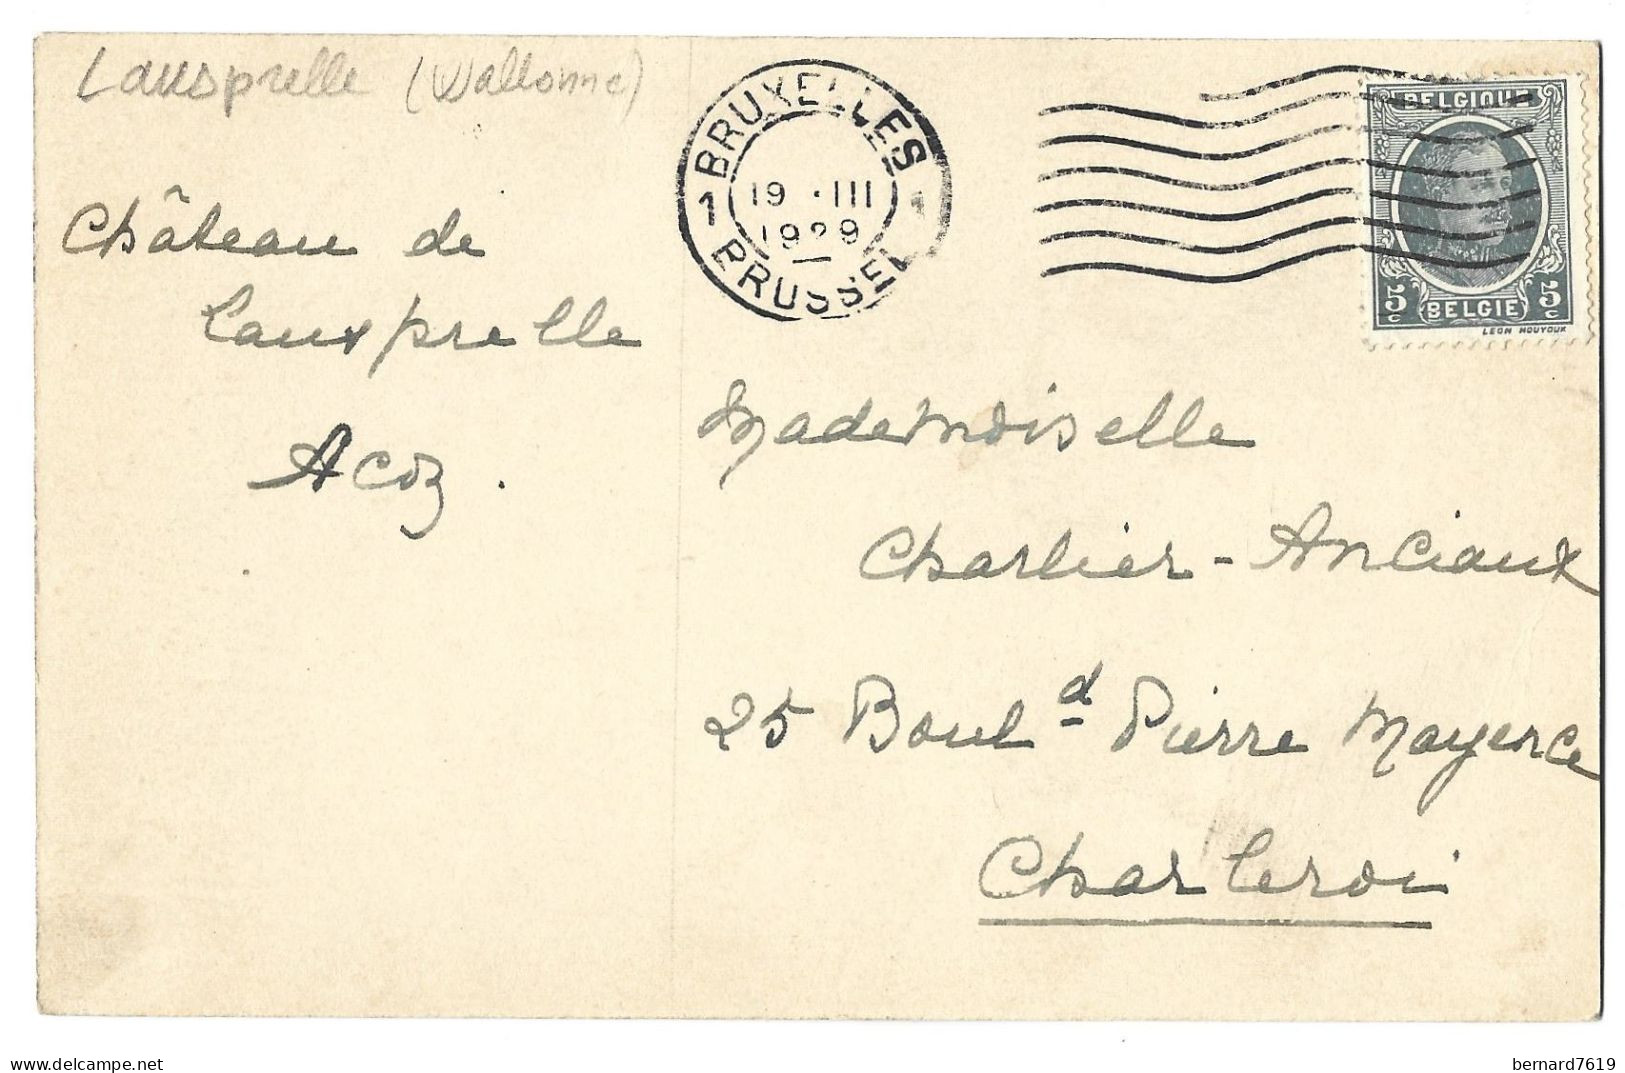 Lausprelle (Wallonne)
Château de
Lausprelle
Acoz.
BRUXELLES
1 1
19 · III
1929
BRUSSEL
BELGIQUE
5c 5c
BELGIE
LEON HOUYOUX
Mademoiselle
Charlier-Anciaux
25 Boul d Pierre Mayence
Charleroi
bernard7619